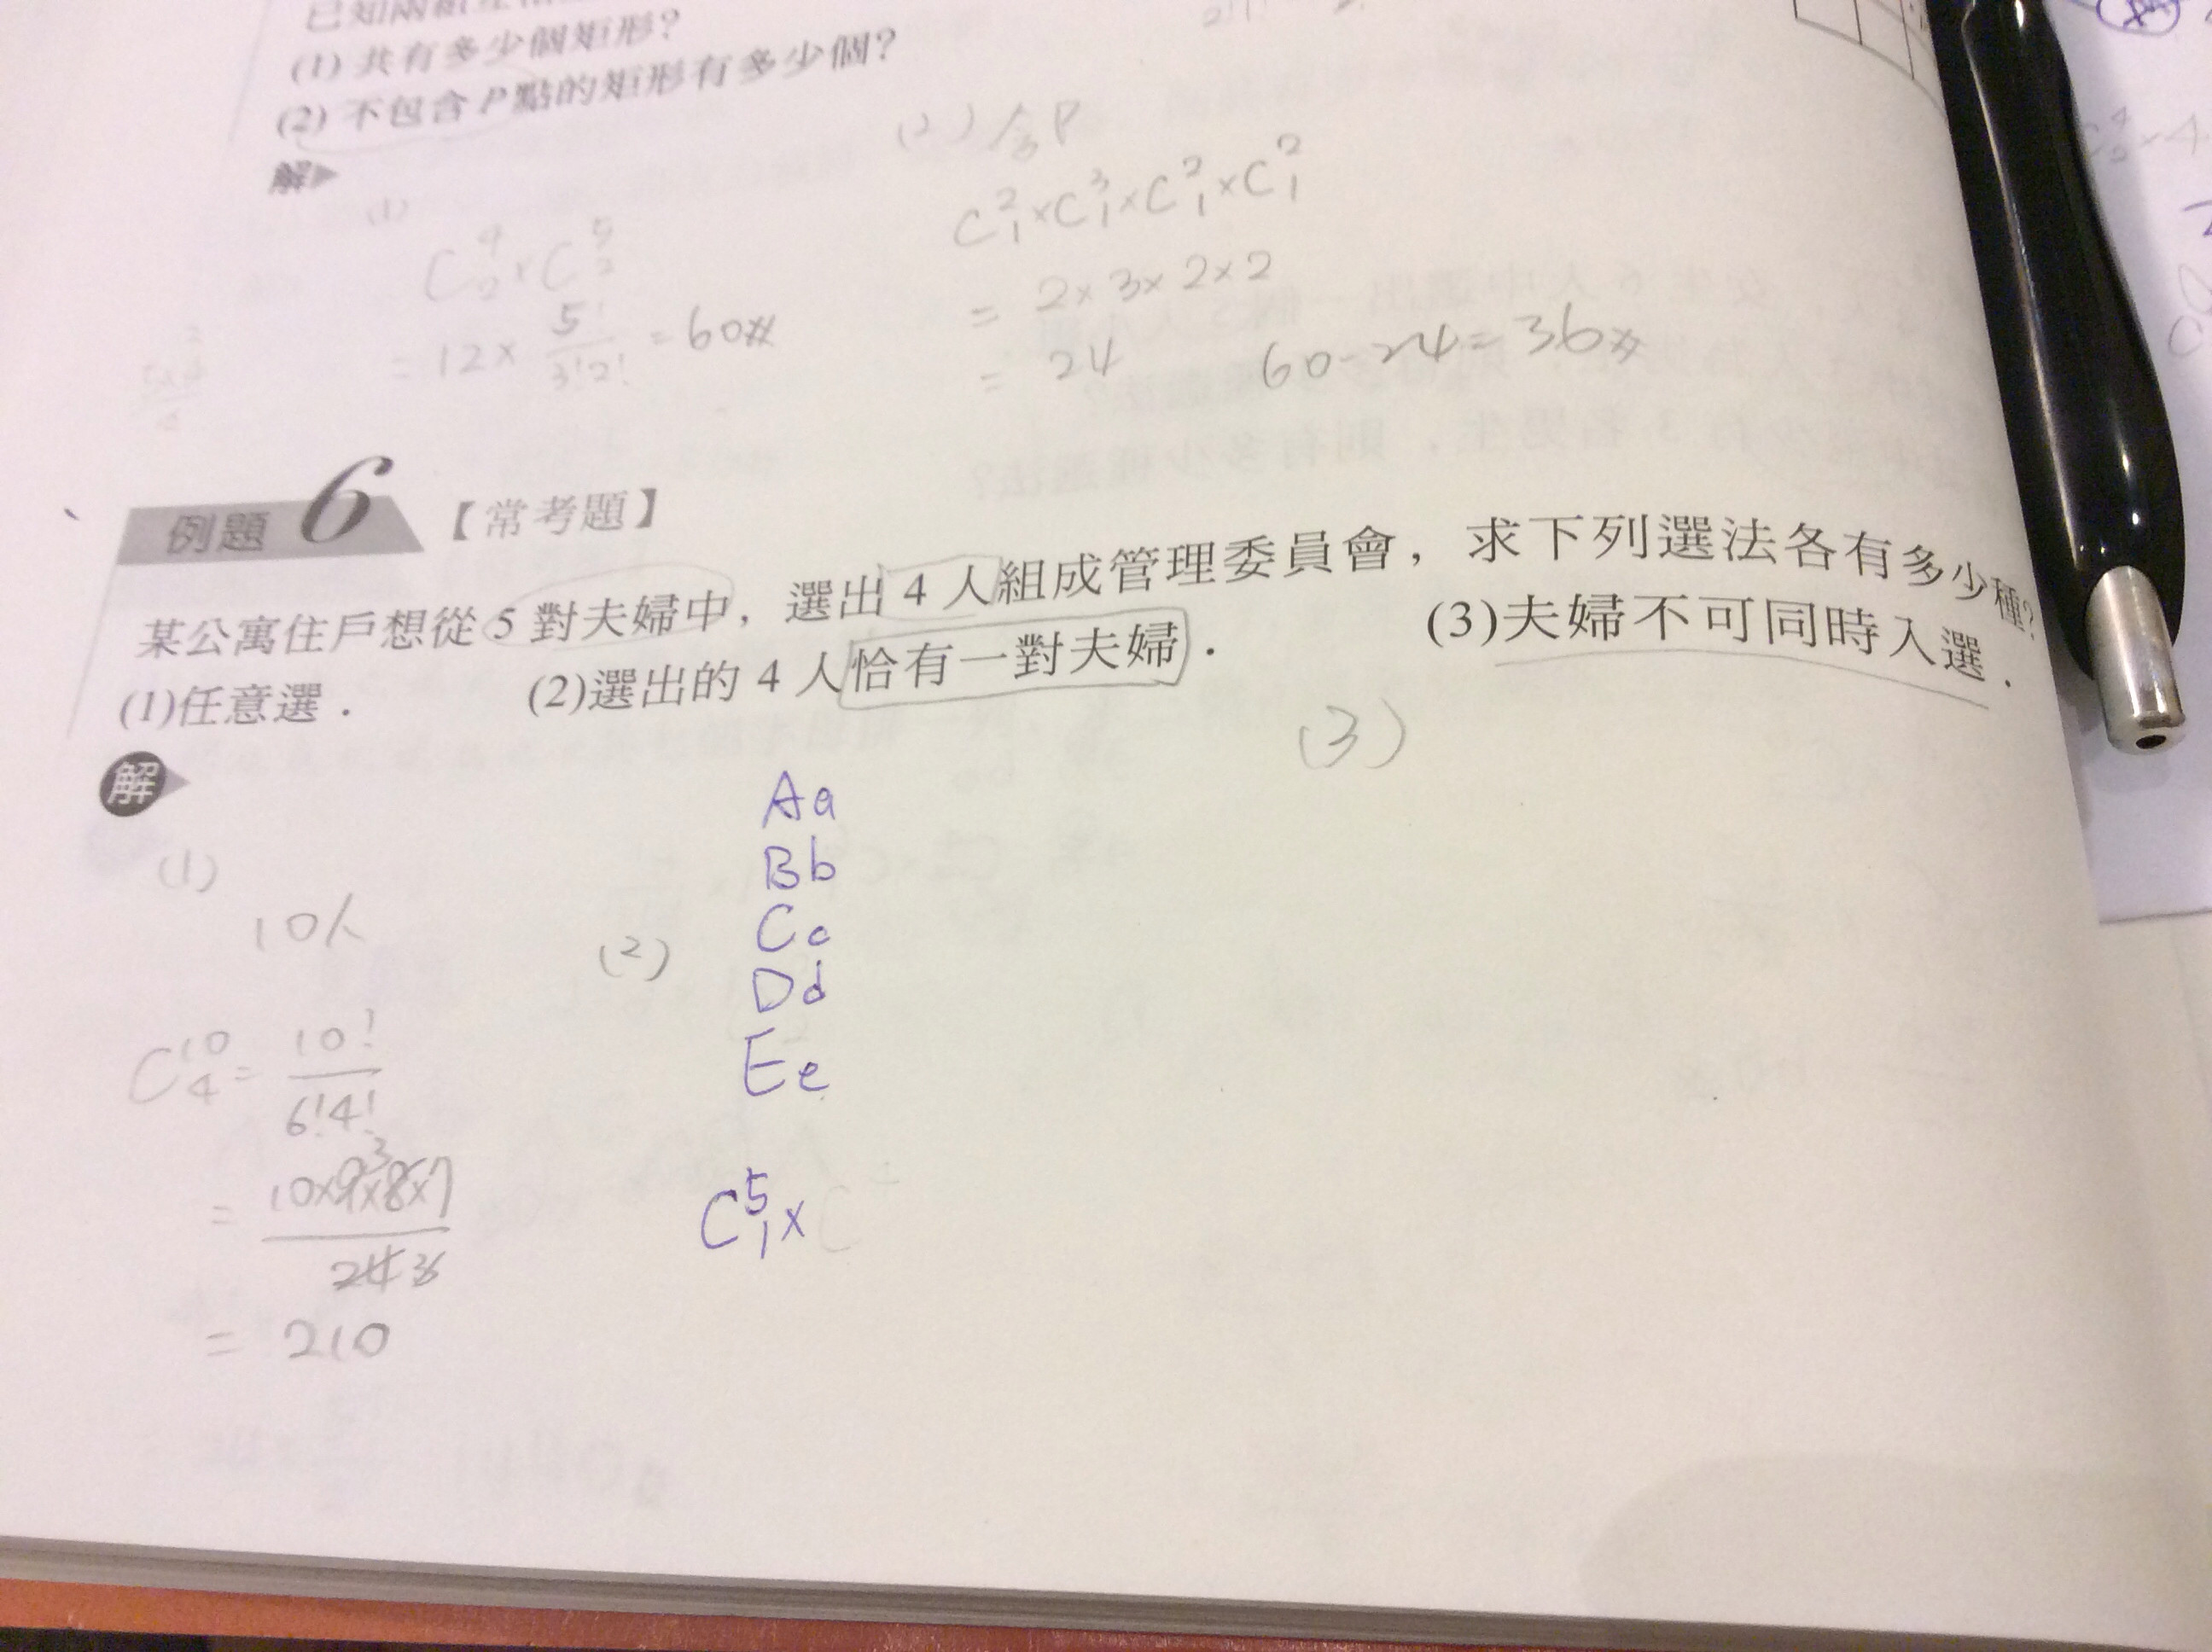 已知兩組互相
(1) 共有多少個矩形?
(2) 不包含 P 點的矩形有多少個?
解
(1)
C⁴₂×C⁵₂
= 12× 5!/3!2! = 60#
(2) 含P
C²₁×C³₁×C²₁×C²₁
= 2×3×2×2
= 24
60-24=36#
例題 6 【常考題】
某公寓住戶想從 5 對夫婦中,選出 4 人組成管理委員會,求下列選法各有多少種?
(1)任意選. (2)選出的 4 人恰有一對夫婦. (3)夫婦不可同時入選.
解
(1)
10人
C¹⁰₄= 10!/6!4!
= 10×9×8×7/24
= 210
(2)
Aa
Bb
Cc
Dd
Ee
C⁵₁×C
(3)